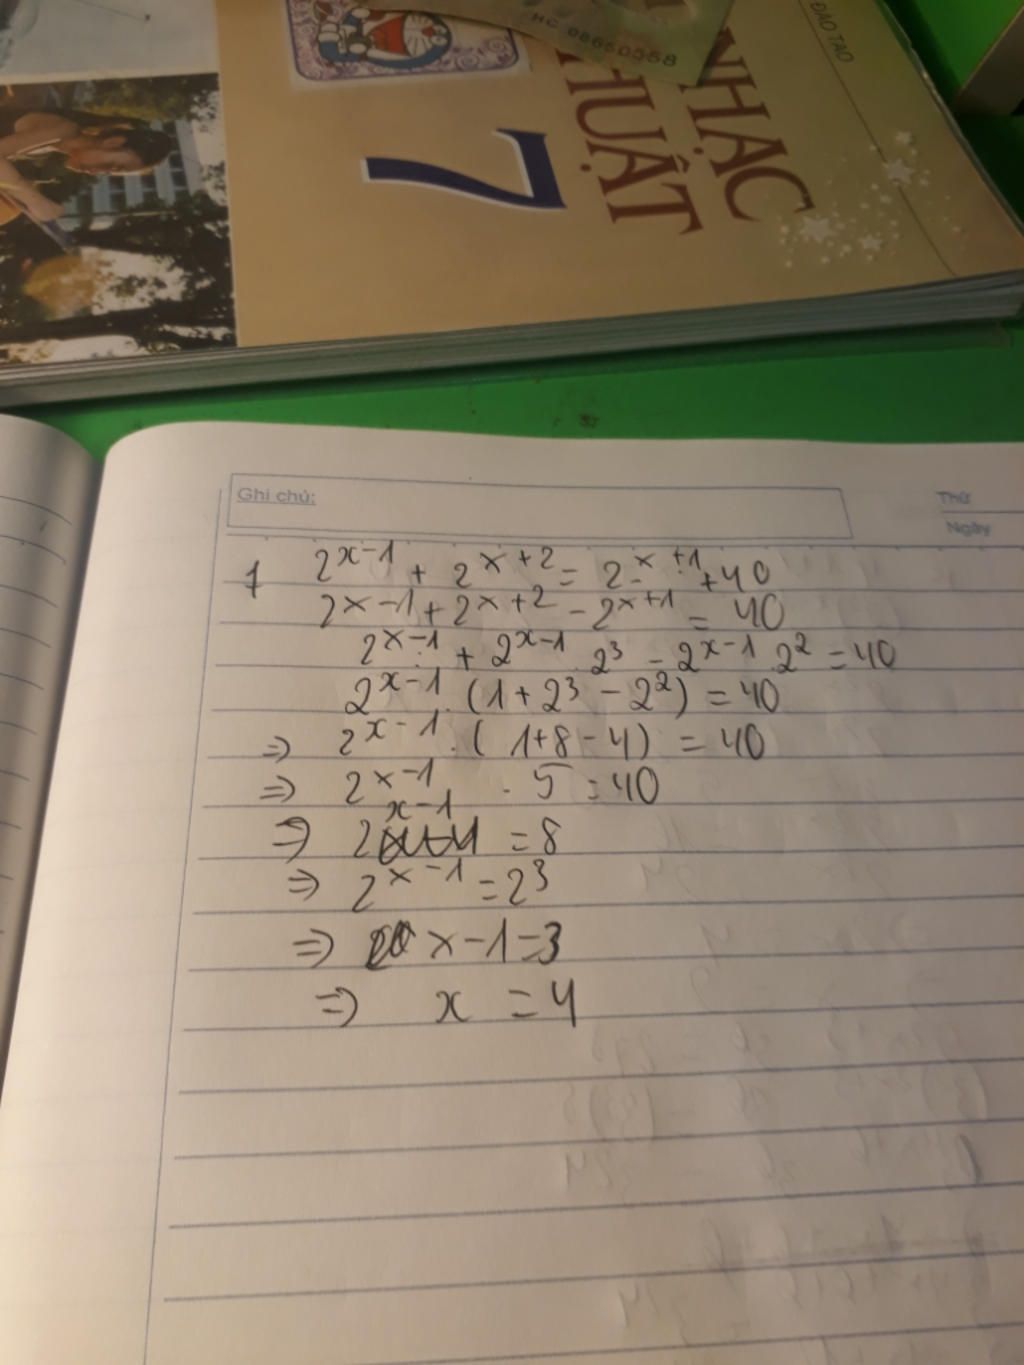 ĐÀO TẠO
HC 08650558
NHẠC
THUẬT
7
Ghi chú:
Thứ
Ngày
1 2^{x-1} + 2^{x+2} = 2^{x+1} + 40
2^{x-1} + 2^{x+2} - 2^{x+1} = 40
2^{x-1} + 2^{x-1} . 2^3 - 2^{x-1} . 2^2 = 40
2^{x-1} . (1 + 2^3 - 2^2) = 40
=> 2^{x-1} . (1+8-4) = 40
=> 2^{x-1} . 5 = 40
=> 2^{x-1} = 8
=> 2^{x-1} = 2^3
=> x-1=3
=> x = 4